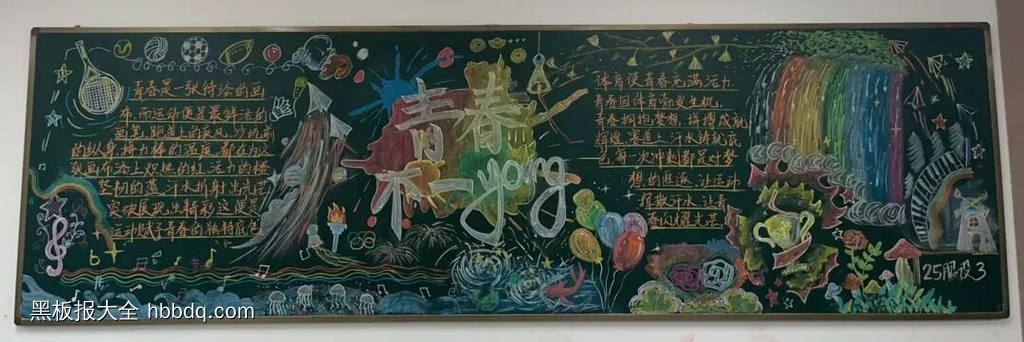 青春是一张待绘的画
布,而运动便是最鲜活的
画笔,跑道上的疾风,沙坑前
的纵身,接力棒的温度,都在为这
张画布添上炽热的红,活力的橙
坚韧的蓝,汗水折射出光芒
突破展现出精彩,这便是
运动赋予青春的独特底色
青春
不一yang
体育使青春充满活力
青春因体育勃发生机,
青春拥抱梦想,拼搏成就
辉煌 赛道上,汗水铸就底
色,每一次冲刺都是对梦
想的追逐,让运动
挥散汗水,让青
春闪耀光芒
25服设3
黑板报大全 hbbdq.com